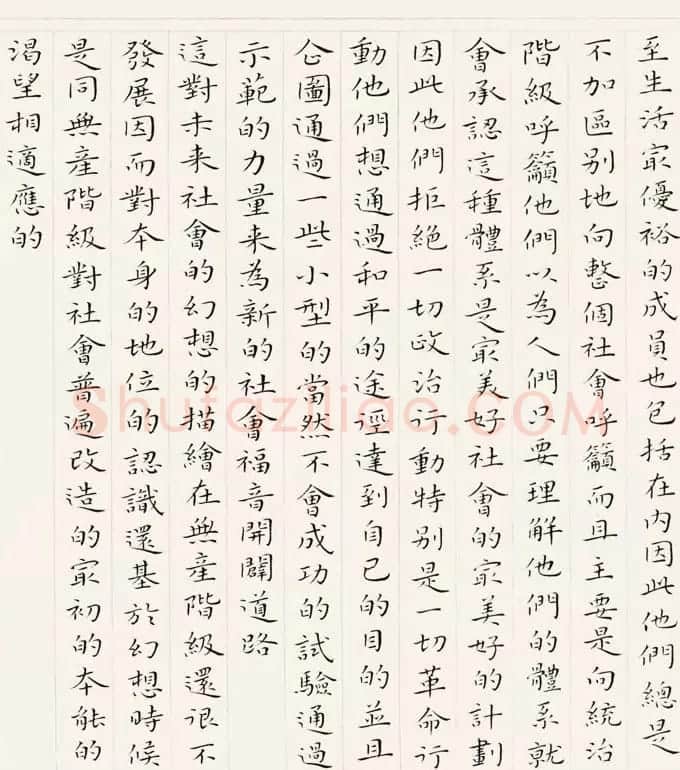 至生活㝡優裕的成員也包括在內因此他們總是
不加區别地向整個社會呼籲而且主要是向統治
階級呼籲他們以為人們只要理解他們的體系就
會承認這種體系是㝡美好社會的㝡美好的計劃
因此他們拒絕一切政治行動特别是一切革命行
動他們想通過和平的途徑達到自己的目的並且
企圖通過一些小型的當然不會成功的試驗通過
示範的力量来為新的社會福音開闢道路
這對未来社會的幻想的描繪在無產階級還很不
發展因而對本身的地位的認識還基於幻想時候
是同無產階級對社會普遍改造的㝡初的本能的
渴望相適應的
Shufaziliao.COM